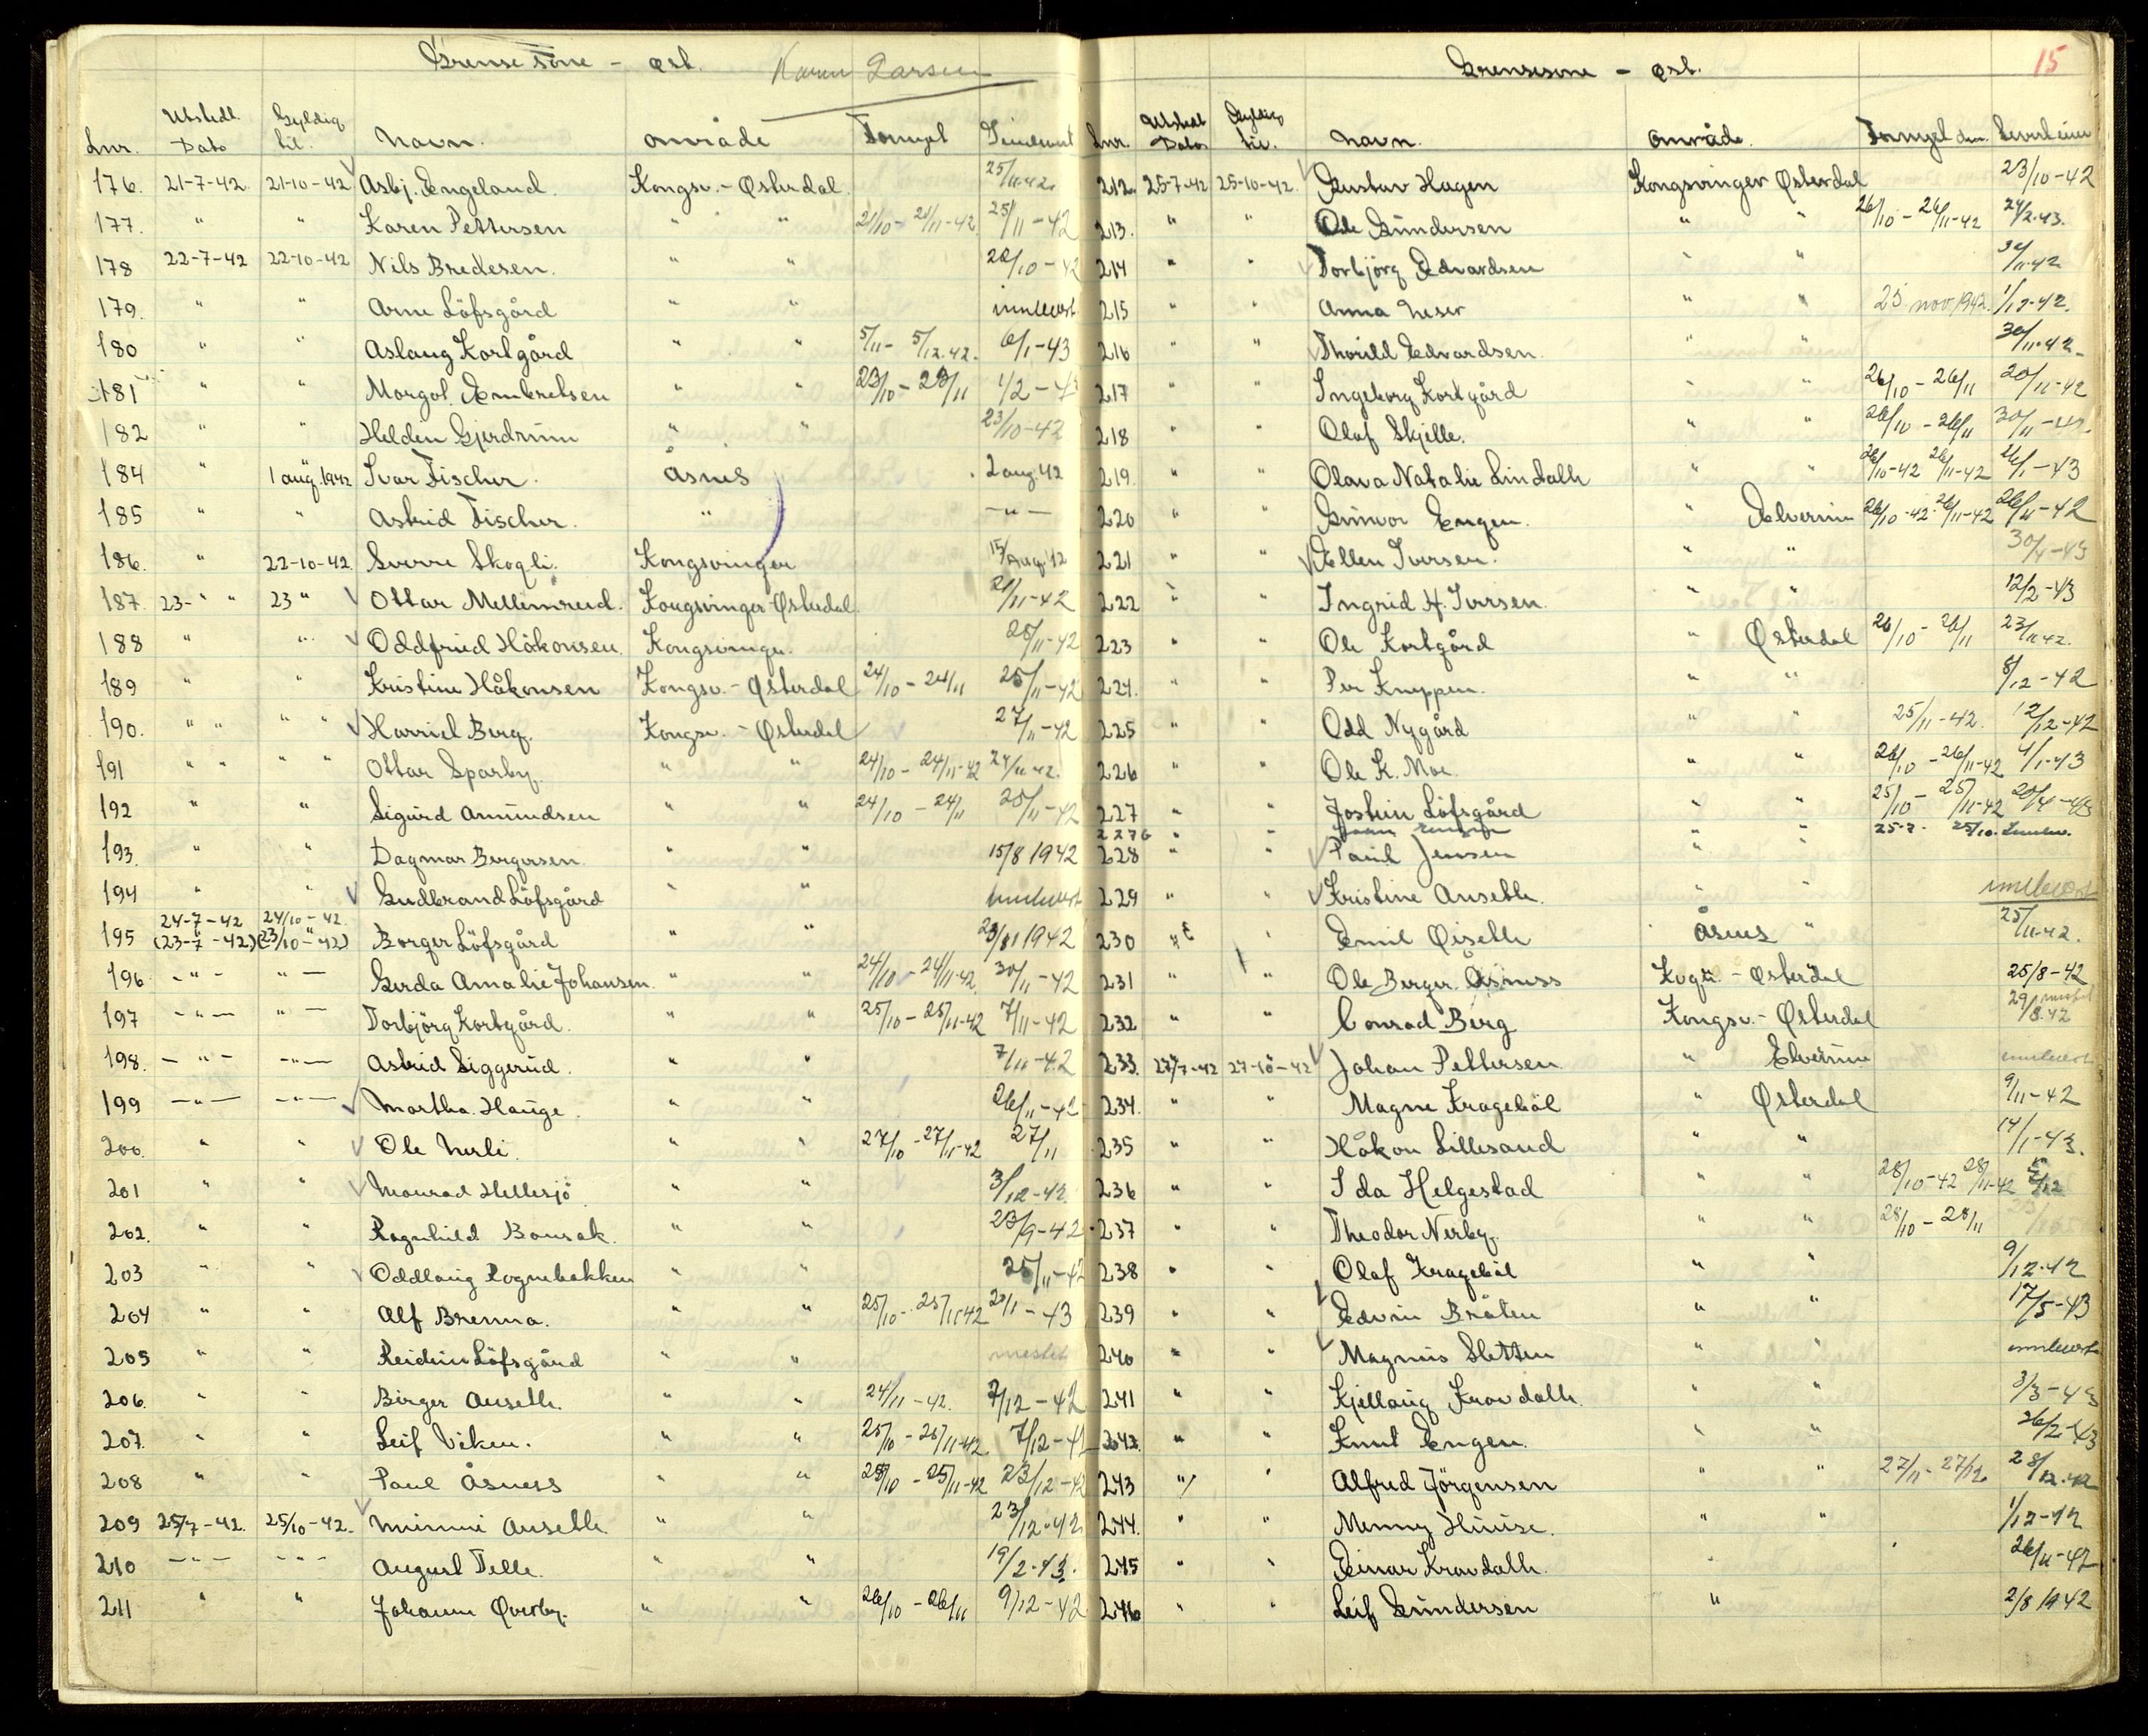 Grensesone - øst. Karen Larsen
Lnr. Utstedt Dato Gyldig til. Navn. Område Fornyet Innlevert
176. 21-7-42. 21-10-42 Asbj. Engeland. Kongsv.-Østerdal. 25/11-42.
177. " " Karen Pettersen " " 21/10-21/11-42 25/11-42
178 22-7-42 22-10-42 Nils Bredesen. " " 22/10-42
179. " " Arne Löfsgård " " innlevert.
180 " " Aslaug Kortgård " " 5/11-5/12.42. 6/1-43
181 " " Margot Embretsen " " 23/10-23/11 1/2-43
182 " " Helden Gjerdrum " " 23/10-42
184 " 1 aug. 1942 Ivar Fischer. Åsnes 2 aug. 42
185 " " Astrid Fischer. " -"-
186. " 22-10-42. Sverre Skogli. Kongsvinger 15/Aug. 42
187. 23-" " 23 " Ottar Mellemreud. Kongsvinger-Østerdal. 21/11-42
188 " " Oddfrid Håkonsen. Kongsvinger. 25/11-42
189 " " Kristine Håkonsen Kongsv.-Østerdal 24/10-24/11 25/11-42
190. " " " " Harriet Berg. Kongsv.-Østerdal 27/11-42
191 " " " " Ottar Sparby. " " 24/10-24/11-42 24/11-42.
192 " " Sigurd Amundsen " " 24/10-24/11 25/11-42
193. " " Dagmar Bergersen. " " 15/8 1942
194 " " Gudbrand Löfsgård " " innlevert
24-7-42 24/10-42.
195 (23-7-42) (23/10-42) Borger Löfsgård " " 23/11 1942
196. -"- "- Gerda Amalie Johansen. " " 24/10-24/11-42. 30/11-42
197 -"- "- Torbjörg Kortgård. " " 25/10-25/11-42 7/11-42
198. -"- -"- Astrid Siggerud. " " 7/11-42
199 -"- -"- Martha Hauge. " " 26/11-42
200. " " Ole Nerli. " " 27/10-27/11-42 27/11
201 " " Monrad Hellesjö " " 3/12-42.
202. " " Ragnhild Bonsak. " " 23/9-42
203 " " Oddlaug Rognebakken " " 25/11-42
204 " " Alf Brenna. " " 25/10-25/11-42 -43
205 " " Reidun Löfsgård " " mistet
206. " " Birger Anseth. " " 24/11-42. 7/12-42
207. " " Leif Viken. " " 25/10-25/11-42. 7/12-42
208 " " Paul Åsness " " 25/10-25/11-42 23/12-42
209 25/7-42. 25/10-42. Mimmi Anseth " " 23/12-42
210 -"- -"- August Telle. " " 19/2-43.
211 " " Johanne Överby. " " 26/10-26/11 9/12-42
Grensesone - øst. 15
Lnr. Utstedt Dato Gyldig til. Navn. Område. Fornyet den. Levert inn
212. 25-7-42 25-10-42. Gustav Hagen Kongsvinger Østerdal 23/10-42
213. " " Ole Gundersen " " 26/10-26/11-42 24/2.43.
214 " " Torbjörg Edvardsen " " 30/11-42
215 " " Anna Neser " " 25 nov 1942. 1/12-42.
216 " " Thorild Edvardsen. " " 30/11-42.
217 " " Ingeborg Kortgård " " 26/10-26/11 20/11-42
218 " " Olaf Skjelle. " " 26/10-26/11 30/11-42.
219. " " Olava Natalie Lindalh " " 26/10-42 26/11-42 26/1-43
220 " " Gunvor Engen. " Elverum 26/10-42. 26/11-42 26/11-42
221 " " Ellen Iversen. " " 30/4-43
222 " " Ingrid H. Iversen. " " 12/2-43
223 " " Ole Kortgård " Østerdal 26/10-26/11 23/11-42.
224. " " Per Kneppen. " " 8/12-42
225 " " Odd Nygård " " 25/11-42. 12/12-42
226 " " Ole K. Moe. " " 26/10-26/11-42 4/1-43
227 " " Jostein Löfsgård " " 25/10-25/11-42 20/4-43
227b " " " " 25-7. 25/10. Innlev.
228 " " Paul Jensen " "
229 " " Kristine Anseth. " " innlevert
230 " " Emil Øiseth Åsnes " 25/11-42.
231 " " Ole Berger Åsness Kvgr.-Østerdal 25/8-42
232 " " Conrad Berg Kongsv.-Østerdal 29/8.42 mistet
233. 27/7-42 27-10-42 Johan Pettersen " Elverum innlevert
234. " " Magne Krageböl " Østerdal 9/11-42
235 " " Håkon Lillesand " " 14/1-43.
236 " " Ida Helgestad " " 28/10-42 28/11-42
237 " " Theodor Nerby. " " 28/10-28/11
238 " " Olaf Krageböl " " 9/12-42
239 " " Edvin Bråten " " 17/5-43
240 " " Magnus Sletten " " innlevert
241 " " Kjellaug Kravdalh. " " 3/3-43
242. " " Knut Engen. " " 26/2-43
243 " " Alfred Jörgensen " " 27/11-27/12. 28/12.42
244. " " Menny Huuse. " " 1/12-42
245 " " Einar Kravdalh. " " 26/11-42
246 " " Leif Gundersen " 2/8 1942